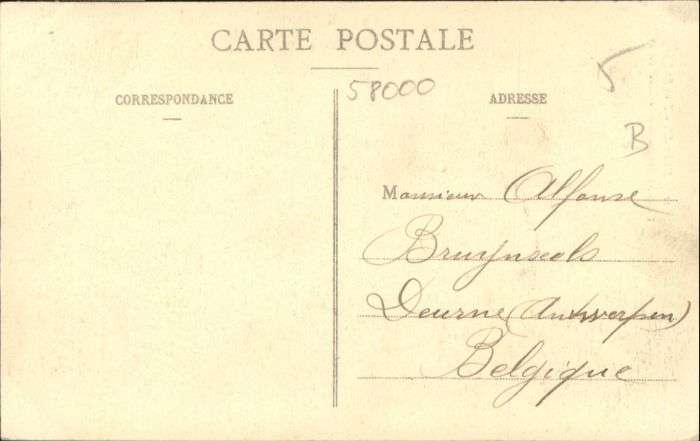 CARTE POSTALE
CORRESPONDANCE
58000
ADRESSE
5
B
Monsieur Alfonse
Bruynseels
Deurne (Antwerpen)
Belgique